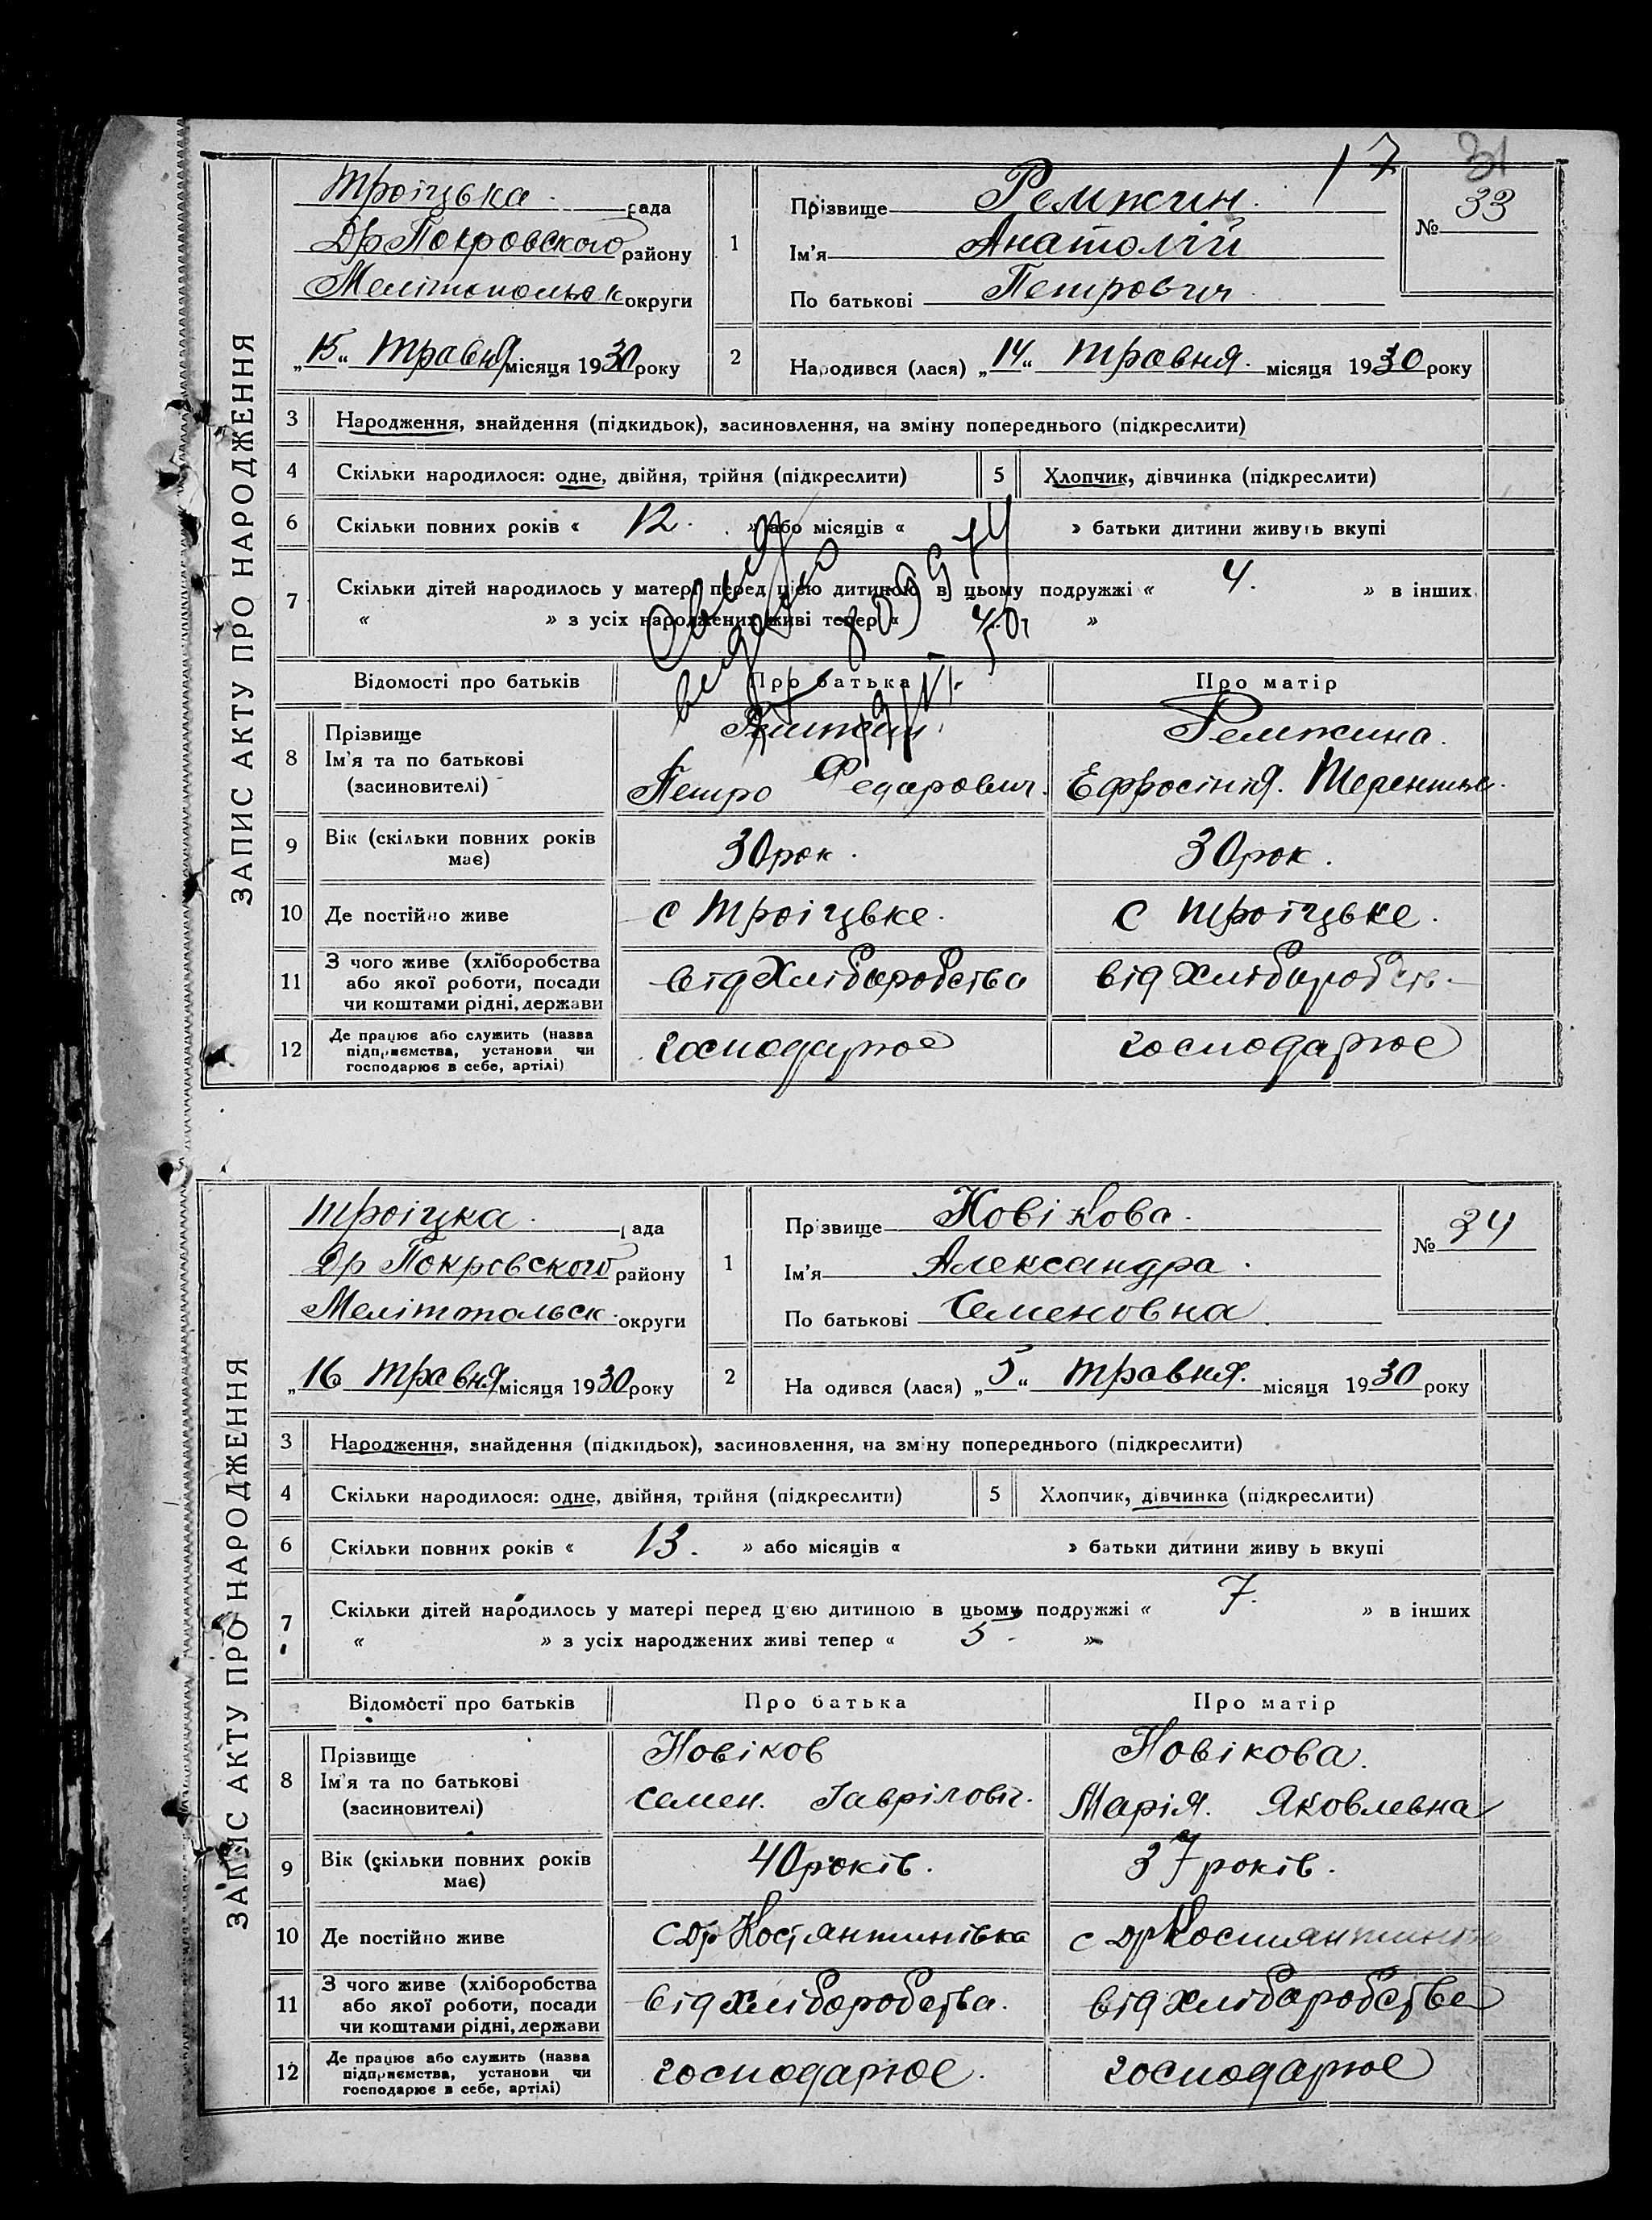 17 31
ЗАПИС АКТУ ПРО НАРОДЖЕННЯ
Троіцька рада
Др Покровского району
Мелітопольск округи
„15“ Травня місяця 1930 року
1 Прізвище Ремжин.
Ім'я Анатолій
По батькові Петрович
№ 33
2 Народився (лася) „14“ Травня. місяця 1930 року
3 Народження, знайдення (підкидьок), засиновлення, на зміну попереднього (підкреслити)
4 Скільки народилося: одне, двійня, трійня (підкреслити) 5 Хлопчик, дівчинка (підкреслити)
6 Скільки повних років « 12. » або місяців « » батьки дитини живуть вкупі
7 Скільки дітей народилось у матері перед цією дитиною в цьому подружжі « 4. » в інших
« » з усіх народжених живі тепер « 4. »
Відомості про батьків Про батька Про матір
8 Прізвище
Ім'я та по батькові
(засиновителі)
Ремжин.
Петро Федарович.
Ремжина.
Ефросінія. Терентьє.
9 Вік (скільки повних років
має)
30 рок. 30 рок.
10 Де постійно живе с Троіцьке. с Троіцьке.
11 З чого живе (хліборобства
або якої роботи, посади
чи коштами рідні, держави
від Хлібаробства від Хлібаробств.
12 Де працює або служить (назва
підприємства, установи чи
господарює в себе, артілі)
господарює господарює
ЗАПИС АКТУ ПРО НАРОДЖЕННЯ
Троіцка. рада
Др Покровского району
Мелітопольск. округи
„16 Травня місяця 1930 року
1 Прізвище Новікова.
Ім'я Александра.
По батькові Семеновна.
№ 34
2 На одився (лася) „5“ Травня. місяця 1930 року
3 Народження, знайдення (підкидьок), засиновлення, на зміну попереднього (підкреслити)
4 Скільки народилося: одне, двійня, трійня (підкреслити) 5 Хлопчик, дівчинка (підкреслити)
6 Скільки повних років « 13. » або місяців « » батьки дитини живу ь вкупі
7 Скільки дітей народилось у матері перед цією дитиною в цьому подружжі « 7. » в інших
« » з усіх народжених живі тепер « 5. »
Відомості про батьків Про батька Про матір
8 Прізвище
Ім'я та по батькові
(засиновителі)
Новіков
Семен. Гаврілович.
Новікова.
Марія. Яковлевна
9 Вік (скільки повних років
має)
40 років. 37 років.
10 Де постійно живе с Др Костянтинівка с Др
11 З чого живе (хліборобства
або якої роботи, посади
чи коштами рідні, держави
від хлібаробства. від хлібаробства
12 Де працює або служить (назва
підприємства, установи чи
господарює в себе, артілі)
господарює. господарює